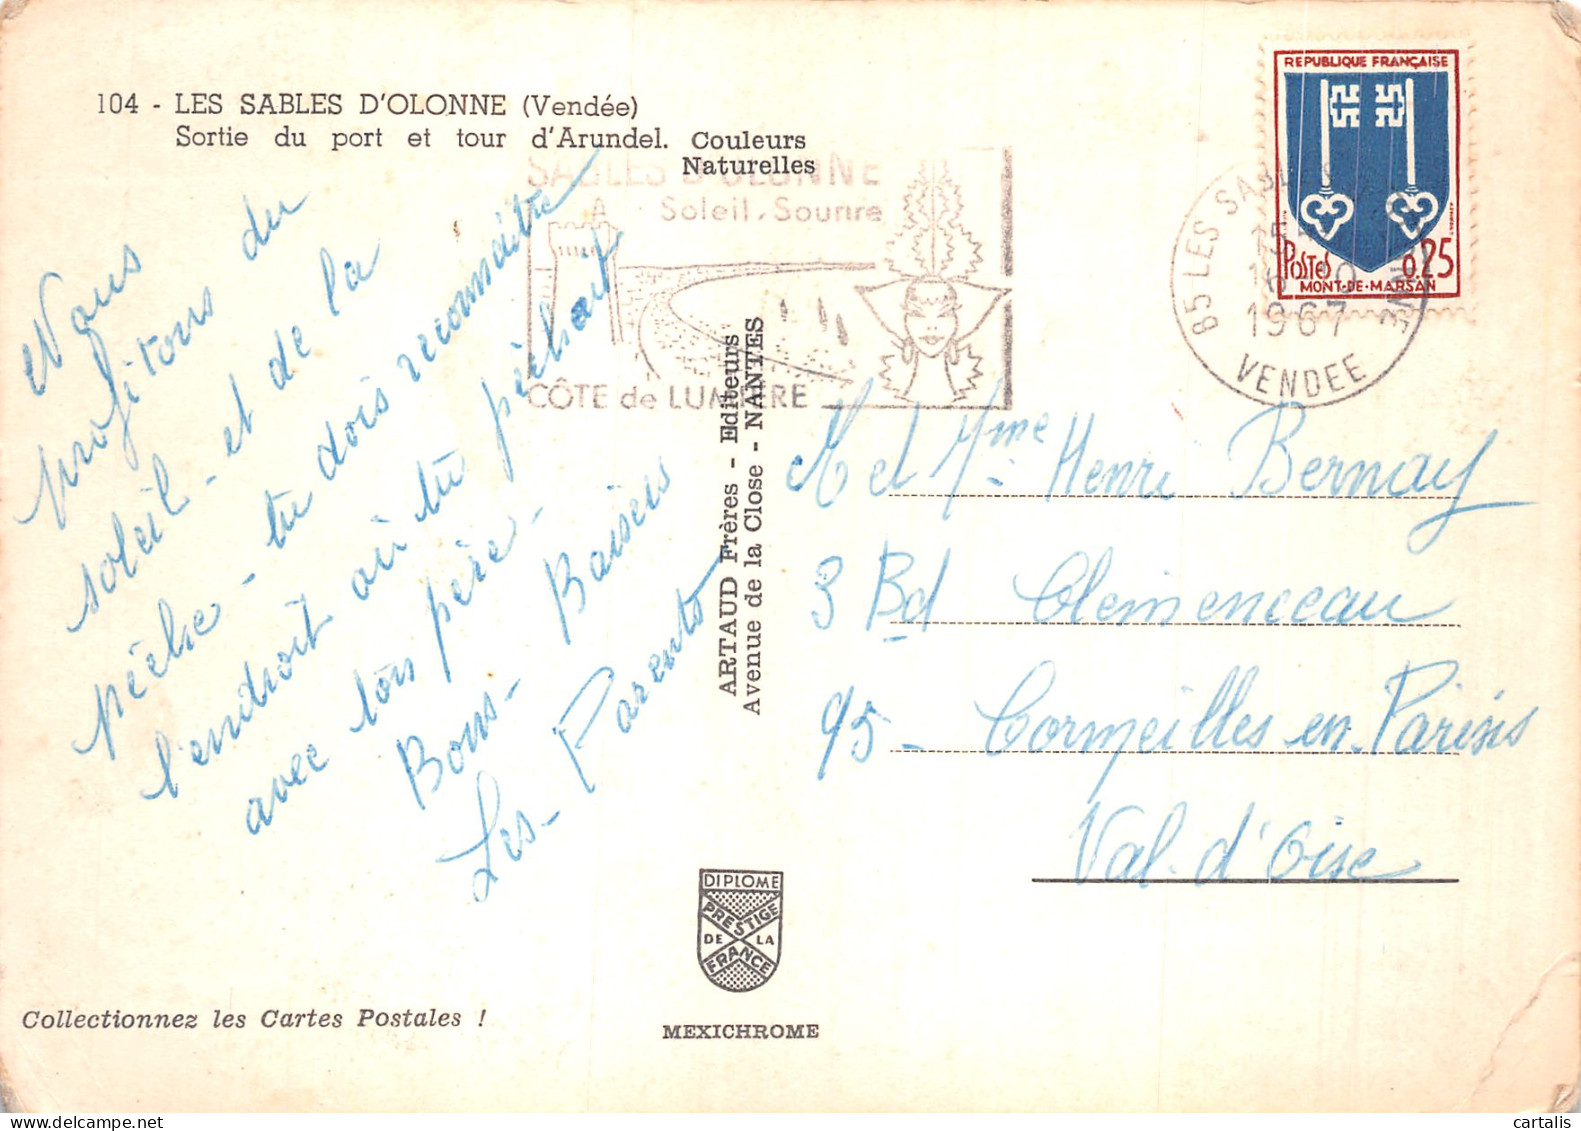 104 - LES SABLES D'OLONNE (Vendée)
Sortie du port et tour d'Arundel. Couleurs
Naturelles
SABLES D'OLONNE
Soleil. Sourire
CÔTE de LUMIERE
REPUBLIQUE FRANÇAISE
POSTES 0,25
MONT-DE-MARSAN
85 LES SABLES
1967
VENDEE
Nous
profitons du
soleil - et de la
pêche - tu dois reconnaître
l'endroit où tu pêchait
avec ton père -
Bons - Baisers
Les - Parents
ARTAUD Frères - Editeurs
Avenue de la Close - NANTES
M et Mme Henri Bernay
3 Bd Clemenceau
95 - Cormeilles-en-Parisis
Val-d'Oise
DIPLOME
PRESTIGE
DE LA
FRANCE
Collectionnez les Cartes Postales !
MEXICHROME
cartalis